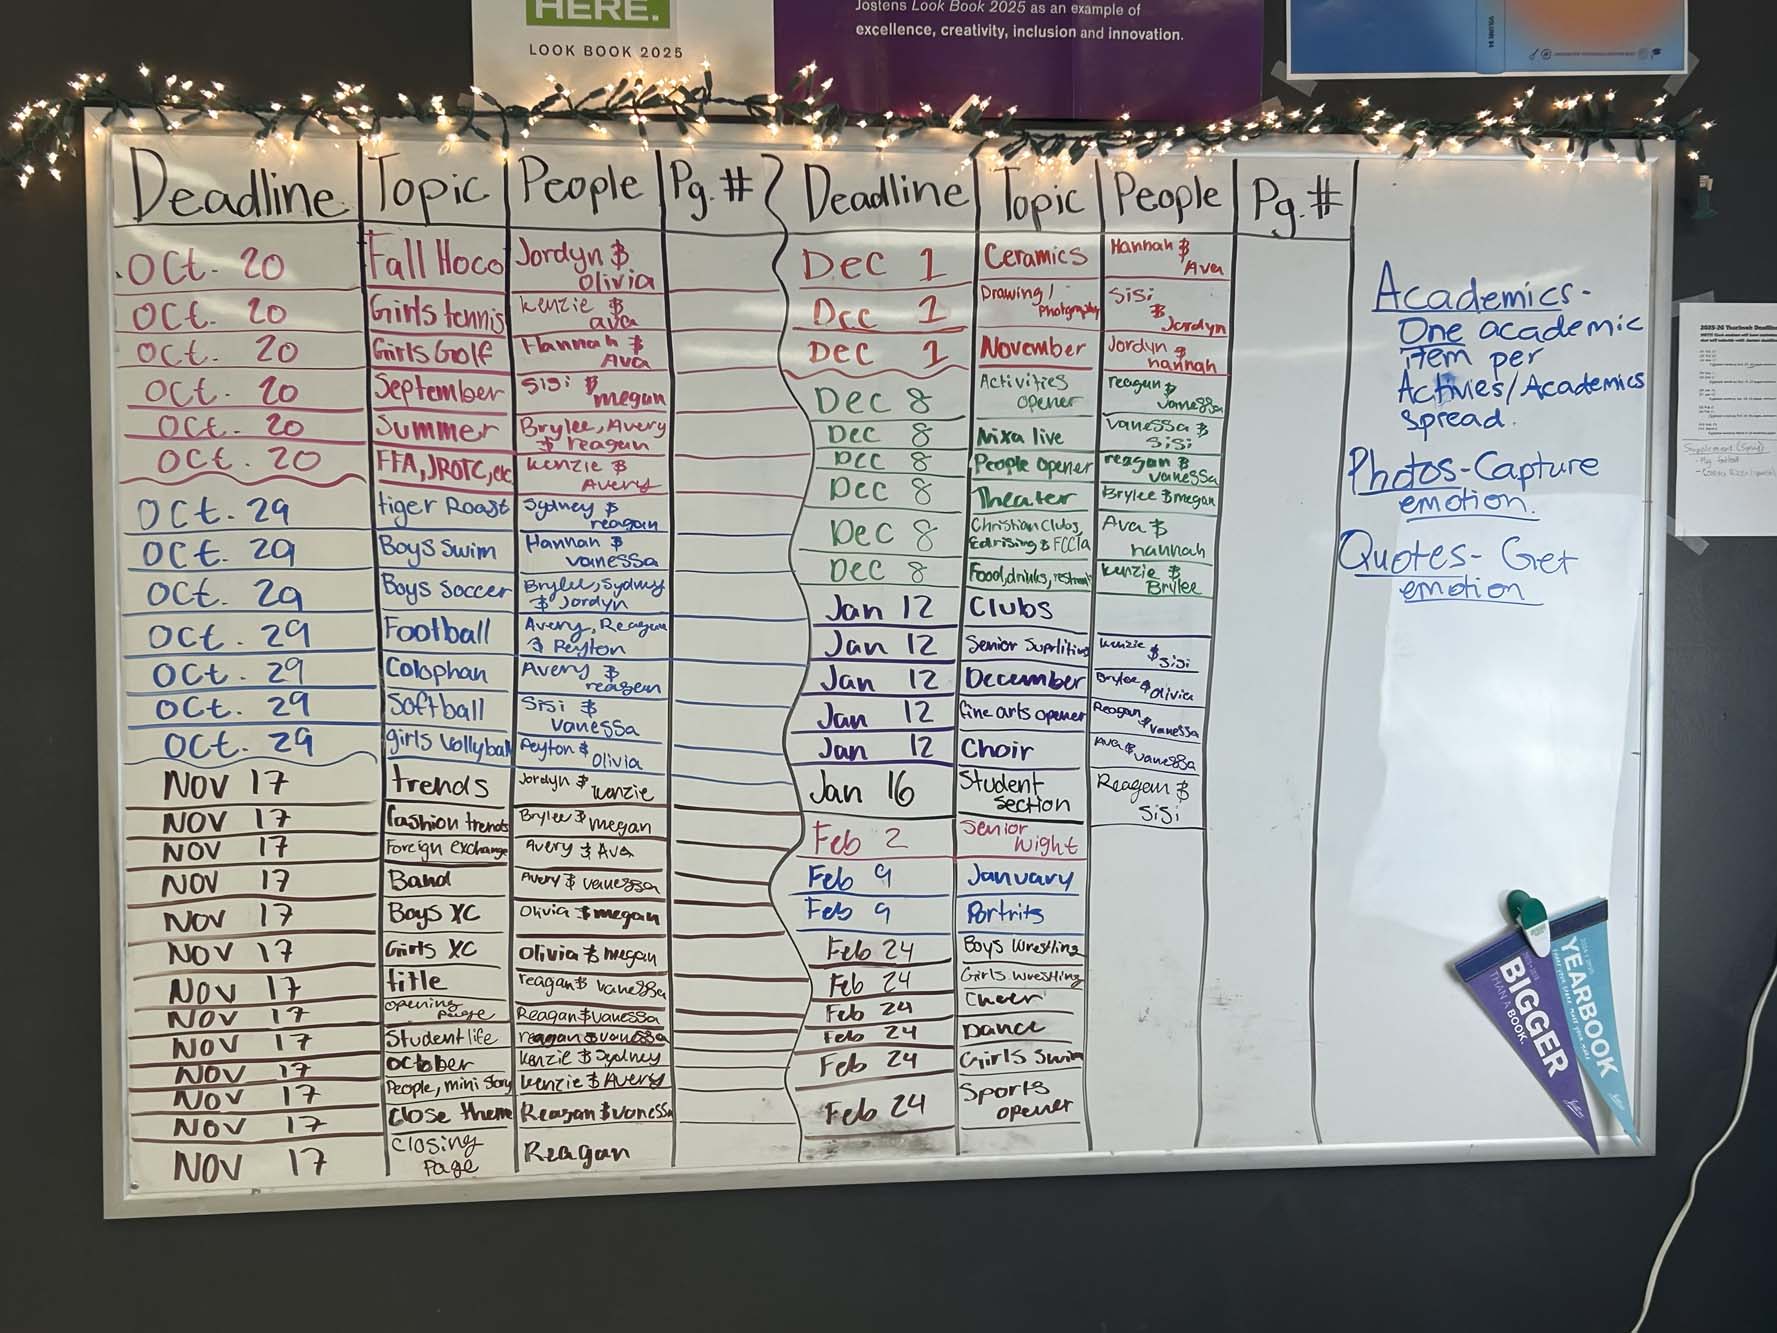 HERE.
LOOK BOOK 2025
Jostens Look Book 2025 as an example of
excellence, creativity, inclusion and innovation.
Deadline Topic People Pg. #
Oct. 20 Fall Hoco Jordyn & Olivia
Oct. 20 Girls tennis Kenzie & ava
Oct. 20 Girls Golf Hannah & Ava
Oct. 20 September Sisi & megan
Oct. 20 Summer Brylee, Avery & reagan
Oct. 20 FFA, JROTC, etc Kenzie & Avery
Oct. 29 tiger Roast Sydney & reagan
Oct. 29 Boys Swim Hannah & vanessa
Oct. 29 Boys Soccer Brylee, Sydney & Jordyn
Oct. 29 Football Avery, Reagan & Peyton
Oct. 29 Colophan Avery & reagen
Oct. 29 Softball Sisi & vanessa
Oct. 29 girls Vollyball Peyton & Olivia
Nov 17 trends Jordyn & Kenzie
Nov 17 fashion trends Brylee & megan
Nov 17 Foreign exchange Avery & Ava
Nov 17 Band Avery & vanessa
Nov 17 Boys XC Olivia & megan
Nov 17 Girls XC Olivia & megan
Nov 17 title reagan & vanessa
Nov 17 opening page Reagan & vanessa
Nov 17 Student life reagan & vanessa
Nov 17 October Kenzie & Sydney
Nov 17 People, mini story Kenzie & Avery
Nov 17 Close theme Reagan & vanessa
Nov 17 Closing Page Reagan
Deadline Topic People Pg. #
Dec 1 Ceramics Hannah & Ava
Dec 1 Drawing / Photography Sisi & Jordyn
Dec 1 November Jordyn & hannah
Dec 8 Activities opener reagan & vanessa
Dec 8 Nixa live vanessa & sisi
Dec 8 People opener reagan & vanessa
Dec 8 Theater Brylee & megan
Dec 8 Christian Clubs, Edrising & FCCLA Ava & hannah
Dec 8 Food, drinks, Kenzie & Brylee
Jan 12 Clubs
Jan 12 Senior Kenzie & Sisi
Jan 12 December Brylee & Olivia
Jan 12 fine arts opener Reagan & vanessa
Jan 12 Choir Ava & vanessa
Jan 16 Student Section Reagan & Sisi
Feb 2 Senior Night
Feb 9 January
Feb 9 Portrits
Feb 24 Boys Wrestling
Feb 24 Girls Wrestling
Feb 24 Cheer
Feb 24 Dance
Feb 24 Girls Swim
Feb 24 Sports opener
Academics-
One academic
item per
Activies/Academics
spread.
Photos-Capture
emotion.
Quotes- Get
emotion
2025-26 Yearbook
BIGGER
THAN A BOOK.
YEARBOOK